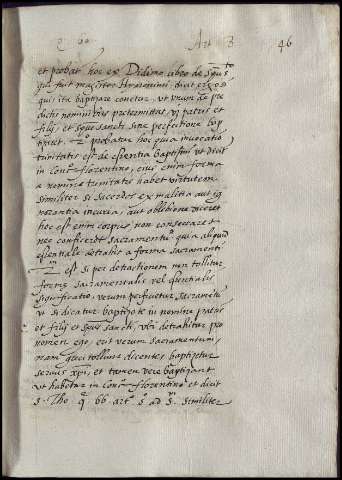 Q 60 Art 8 46
et probat hoc ex Didimo libro de Spũ sto
qui fuit magister Hieronimi, dicit
qui ita baptizare conetur, ut unum de prę
dictis nominibus pretermittat, vl patris et
filij, et spũs sancti sine perfectione bap
tizet. 2º probatur hoc quia invocatio
trinitatis est de essentia baptismi ut dicit
in Conc. florentino, eius enim forma
a nomine trinitatis habet virtutem
similiter si sacerdos ex malitia aut ig
norantia incuria, aut oblivione diceret
hoc est enim corpus non consecraret
nec conficeret sacramentũ quia aliquid
essentiale detrahit a forma sacramenti
est si per detractionem non tollitur
forma sacramentalis vel essentialis
significatio, verum perficietur sacramẽtũ
ut si dicatur baptizo te in nomine patris
et filij et spũs sancti, ubi detrahitur pro
nomen ego, erit verum sacramentum,
nam greci tollunt dicentes, baptizetur
servus xpi, et tamen vere baptizant
ut habetur in Conc. florentino et dicit
S. Tho. q. 66 art. 5 ad similiter